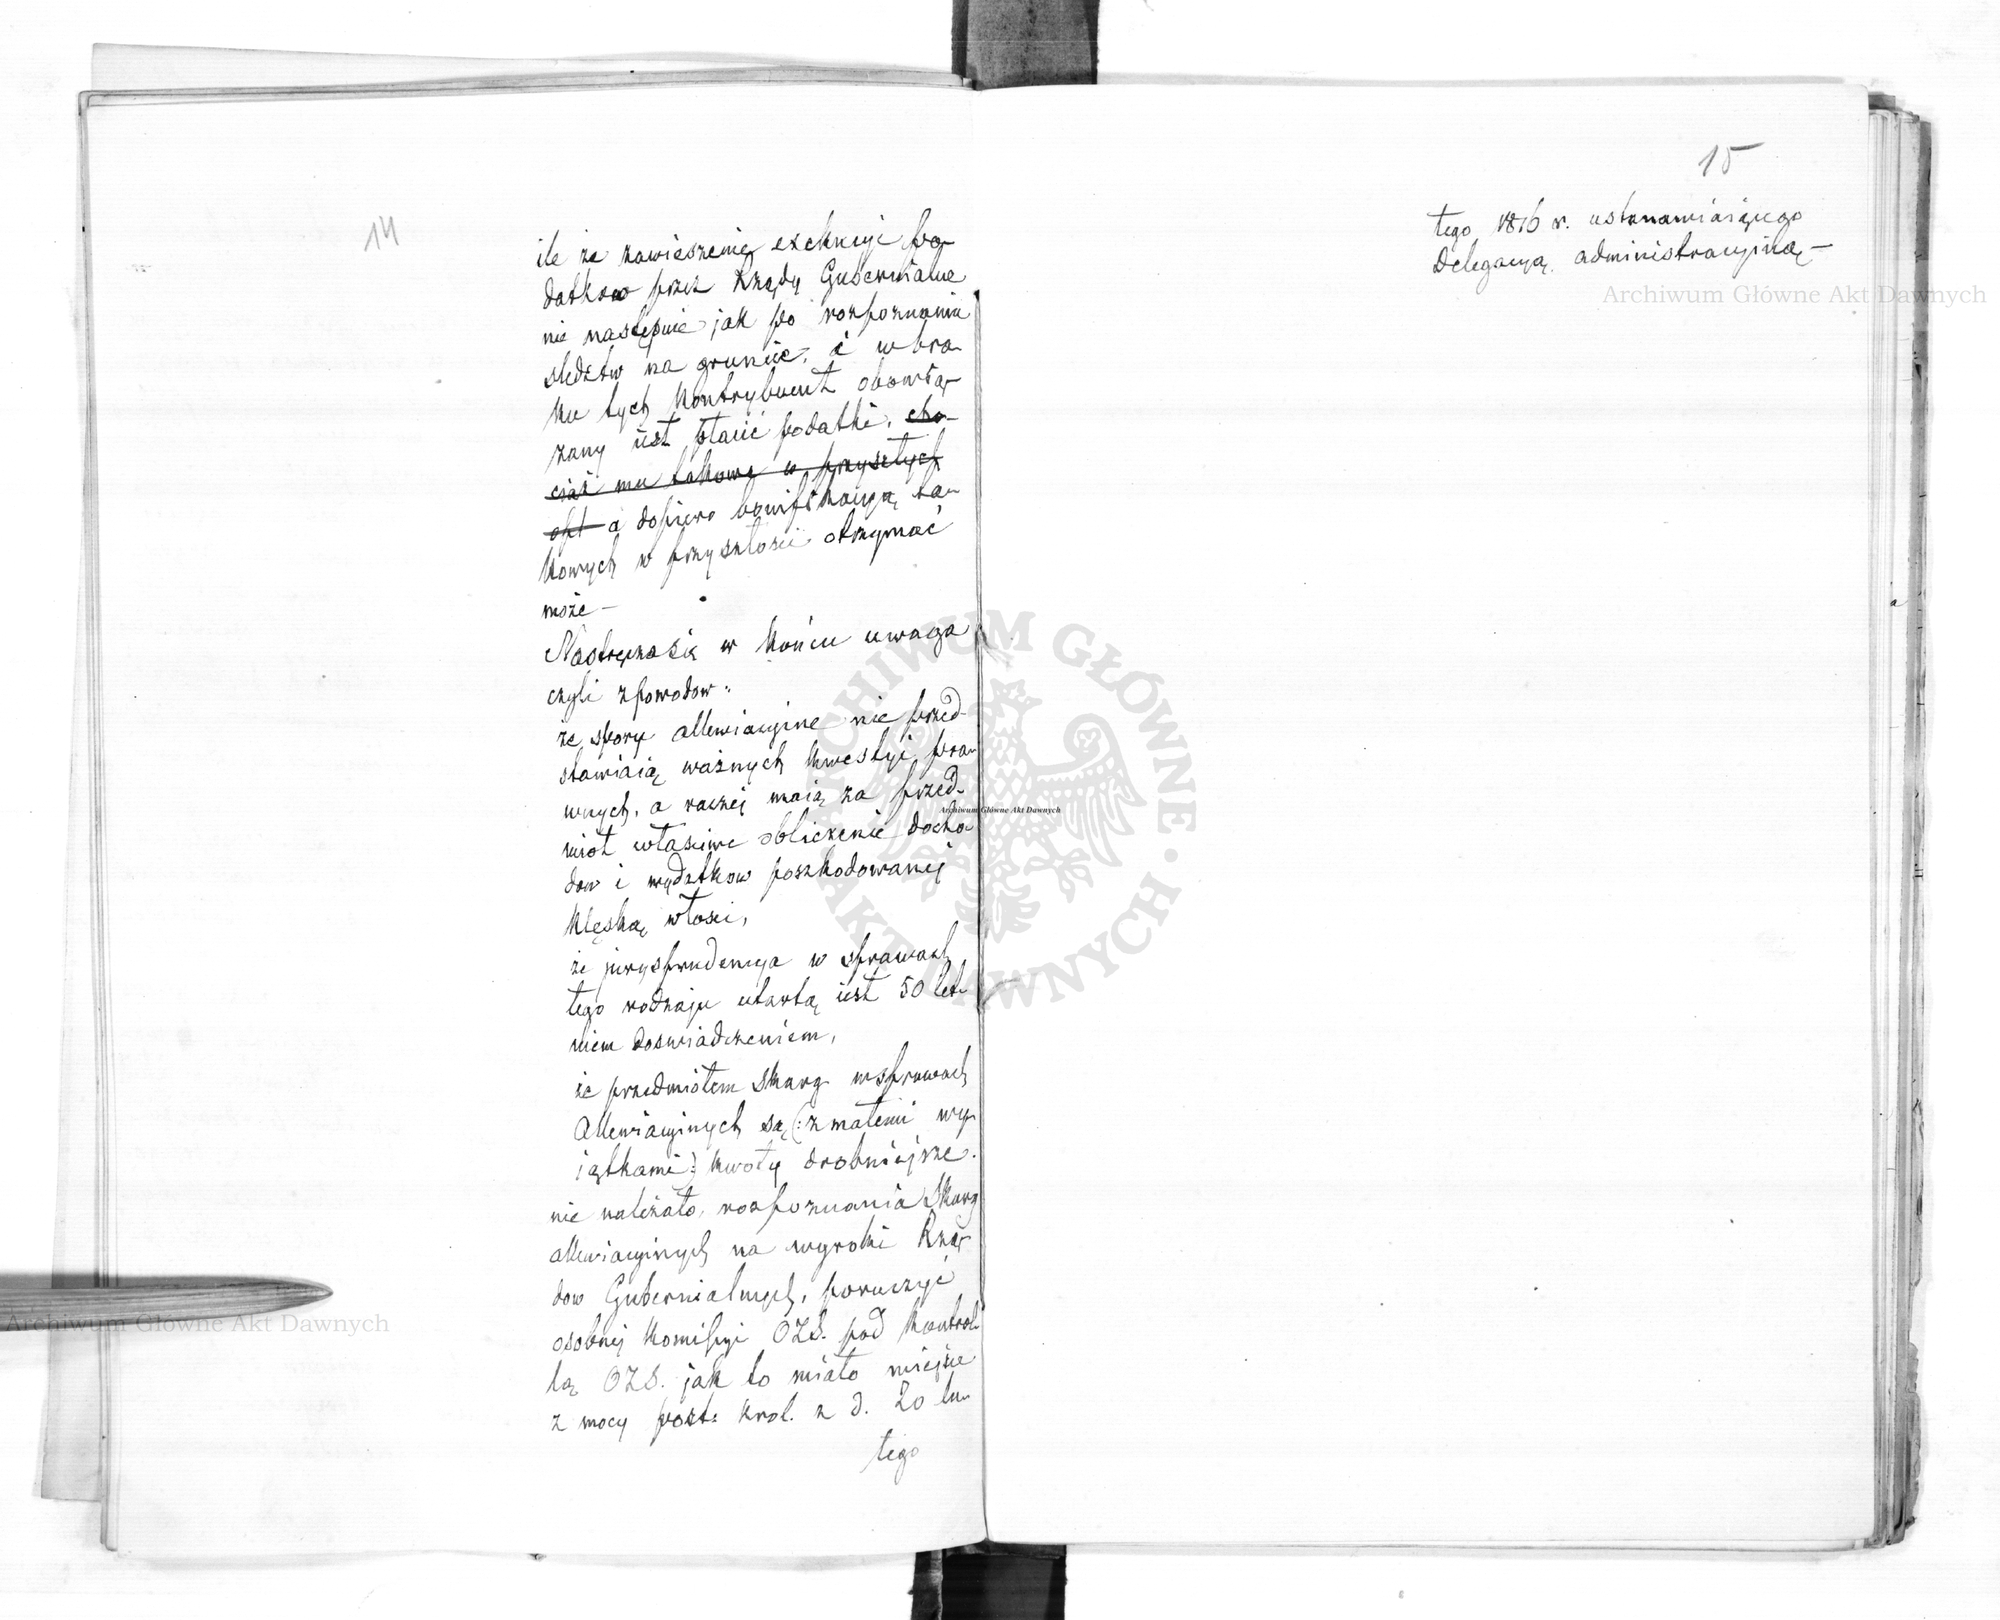 14
ile że zawieszenie exekucyi po-
datkow przez Rządy Gubernialne
nie nastąpuie jak po rozpoznaniu
sledztw na gruncie, i w bra-
ku tych Kontrybuent obowią-
zany iest płacić podatki, cho-
ciaż mu takowe w przyszłych
a dopiero bonifikacyą ta-
kowych w przyszłosci otrzymać
może —
Nastręcza się w końcu uwaga
czyli z powodow:
że spory allewiacyine nie przed-
stawiaią ważnych kwestyi pra-
wnych, a raczej maią za przed-
miot własciwe obliczenie docho-
dow i wydatkow poszkodowanej
klęską włosci,
że jurysprudencya w sprawach
tego rodzaju utartą iest 50 let-
niem doswiadczeniem,
że przedmiotem skarg w sprawach
Allewiacyinych są (: z małemi wy-
iątkami :) kwoty drobniejsze.
nie należało, rozpoznania Skarg
allewiacyinych na wyroki Rzą-
dow Gubernialnych, poruczyć
osobnej Komissyi OZS. pod kontrol-
lą OZS. jak to miało miejsce
z mocy post: Krol. z d. 20 lu-
tego
15
tego 1816 r. ustanawiaiącego
Delegacyą administracyiną —
Archiwum Główne Akt Dawnych
Archiwum Główne Akt Dawnych
Archiwum Główne Akt Dawnych
ARCHIWUM GŁÓWNE AKT DAWNYCH